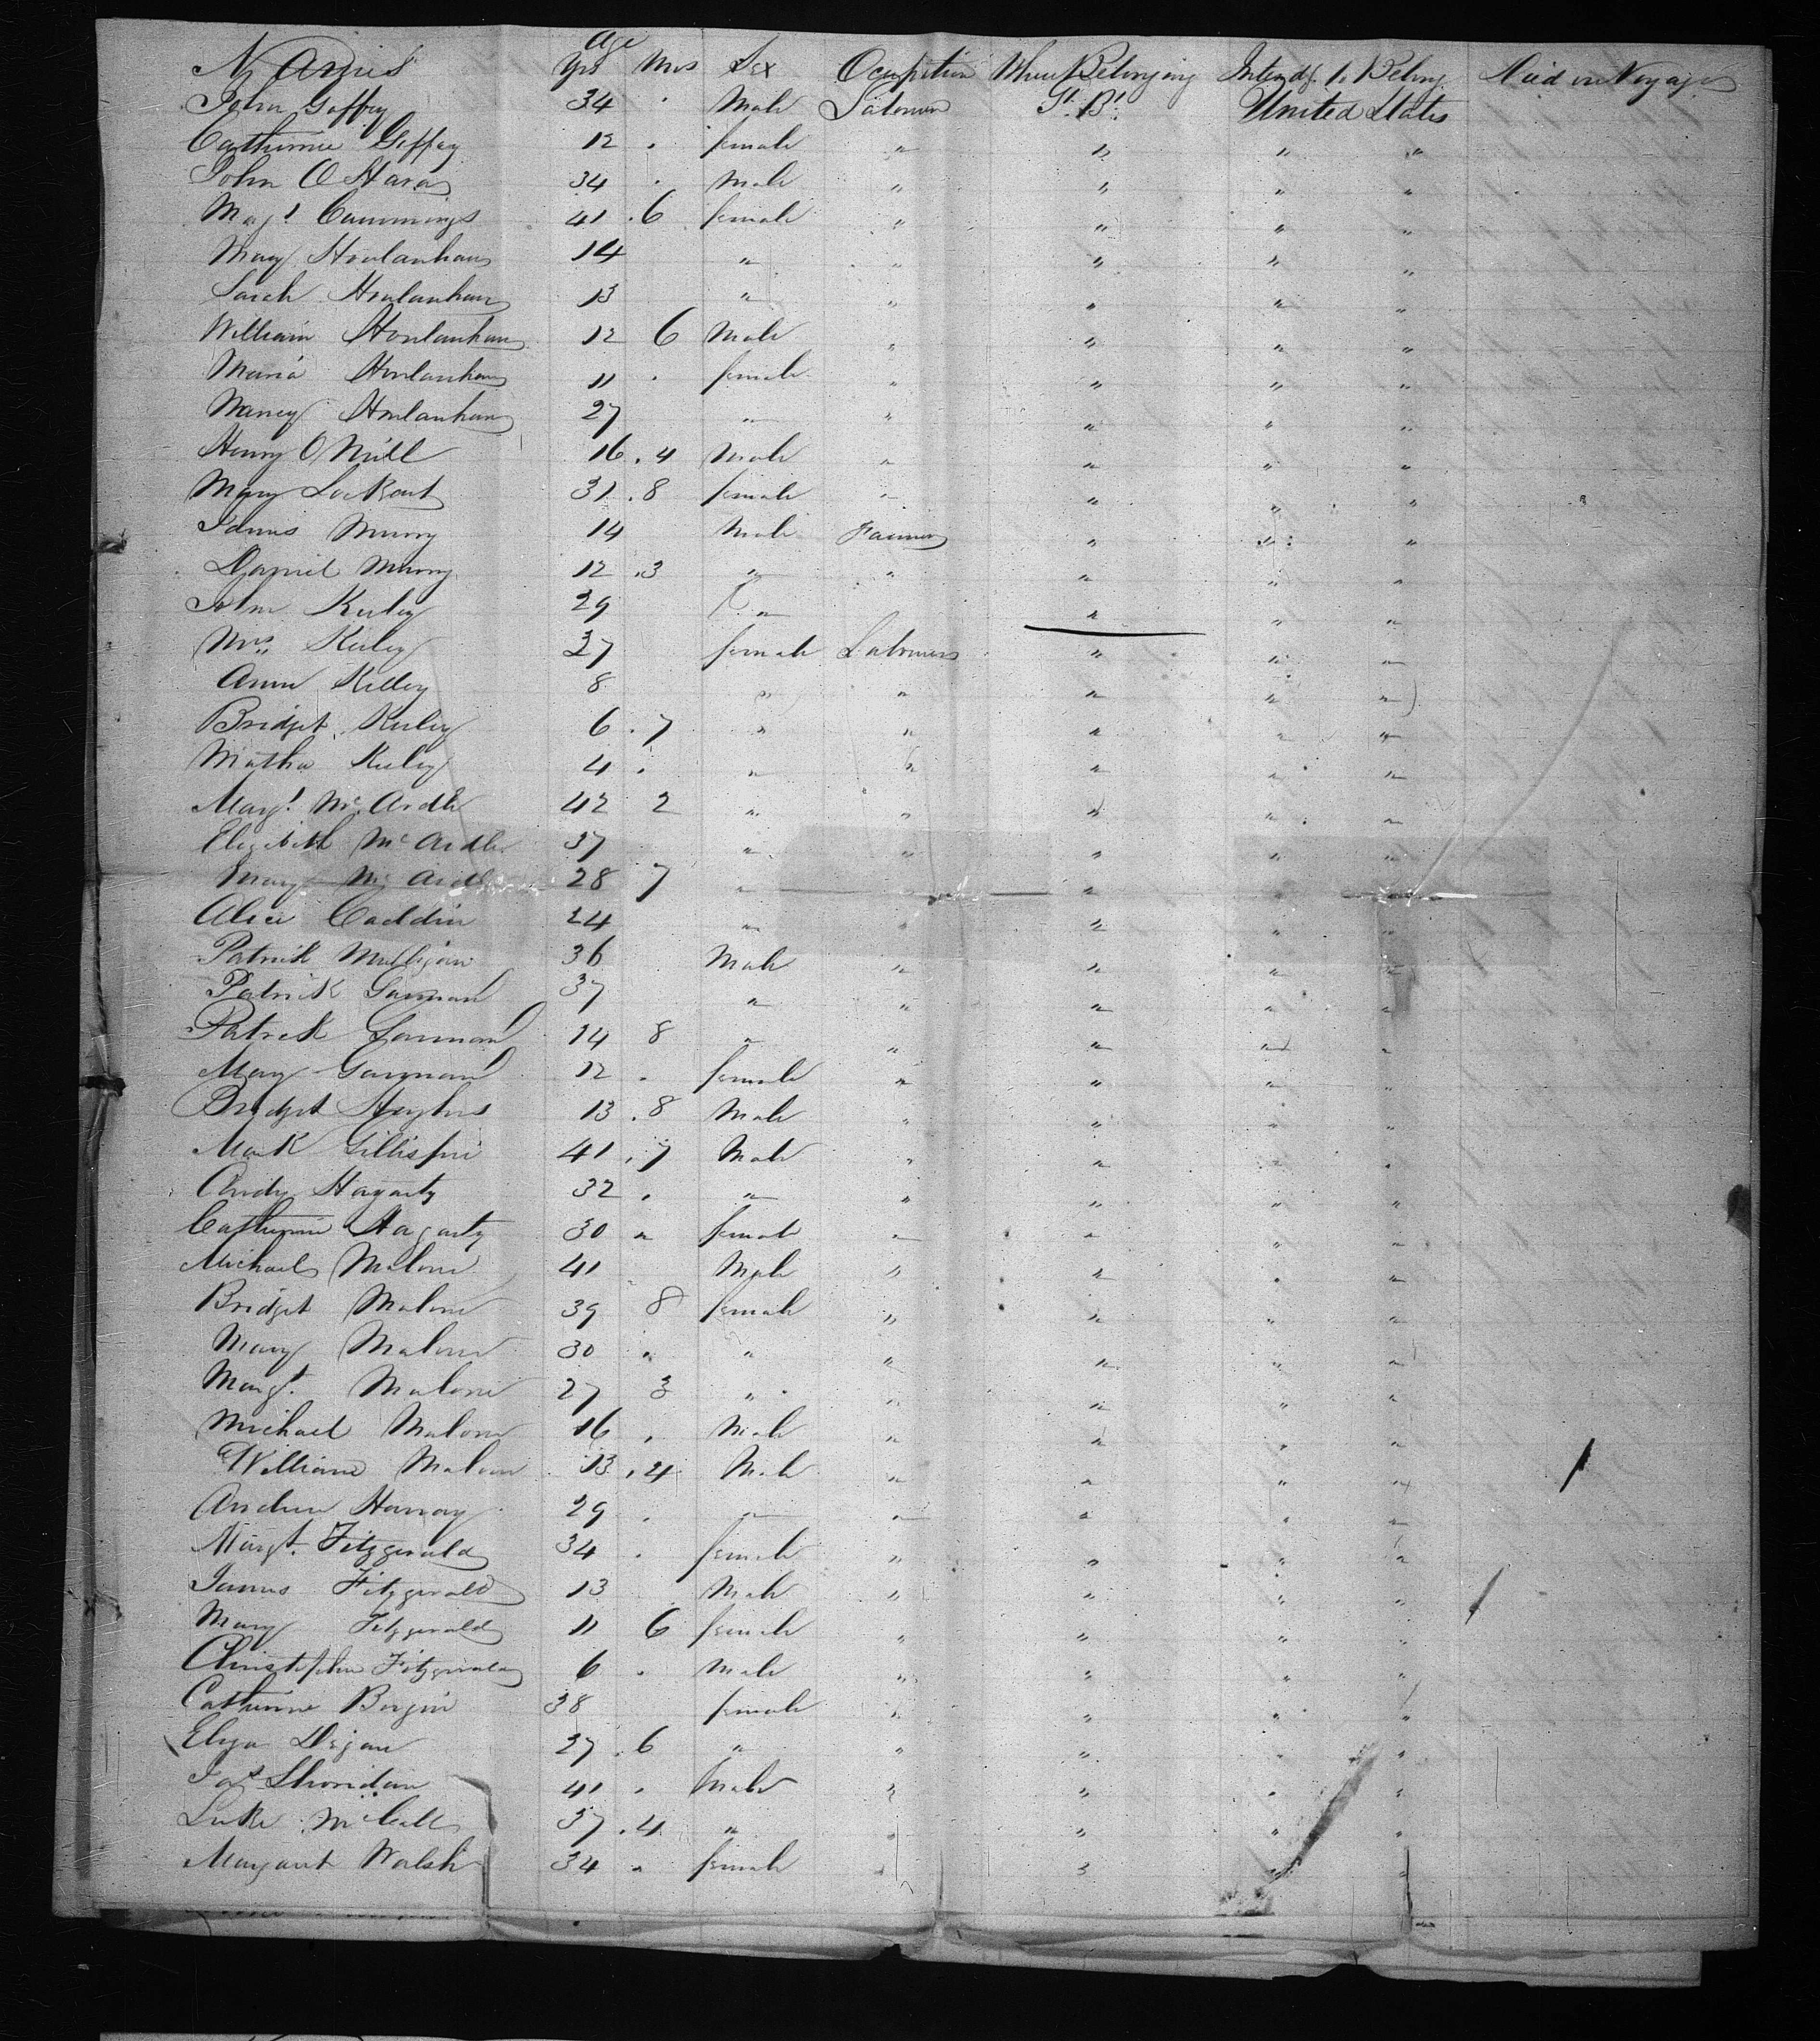 Names Age Yrs Mos Sex Ocupation Where Belonging Intendg. to Belong Died on Voyage
John Gaffey 34 . Male Laborour Gt. Bt. United States
Catherine Geffey 12 . female " " " "
John O Hara 34 . Male " " " "
Magt Cummings 41 . 6 female " " " "
Mary Houlanhan 14 " " " " "
Sarah Houlanhan 13 " " " " "
William Houlanhan 12 6 Male " " " "
Maria Houlanhan 11 . female " " " "
Nancy Houlanhan 27 " " " " "
Henry O Niell 16 . 4 Male " " " "
Mary Lockart 31 . 8 female " " " "
James Murry 14 Male Farmer " " "
Daniel Murry 12 . 3 " " " " "
John Kieley 29 " " " "
Mrs. Kieley 37 female Labourers " " "
Anne Kelley 8 " " " " "
Bridget Kieley 6 . 7 " " " " "
Matha Kieley 4 . " " " " "
Margt Mc Ardle 42 2 " " " " "
Elizabeth Mc Ardle 37 " " " " "
Mary Mc Ardle 28 7 " " " " "
Alice Caddin 24 " " " " "
Patrick Mulligan 36 Male " " " "
Patrick Garman 37 " " " " "
Patrick Garman 14 8 " " " " "
Mary Garman 12 . female " " " "
Bridget Hughes 13 . 8 Male " " " "
Mark Gillispie 41 . 7 Male " " " "
Andy Hagarty 32 . " " " " "
Catherine Hagarty 30 " female " " " "
Michael Malone 41 Male " " " "
Bridget Malone 39 8 female " " " "
Mary Malone 30 " " " " " "
Margt. Malone 27 3 " " " " "
Michael Malone 16 . Male " " " "
William Malone 13 . 4 Male " " " "
Andrew Harray 29 . " " " " "
Margt. Fitzgerald 34 . female " " " "
James Fitzgerald 13 Male " " " "
Mary Fitzgerald 11 6 female " " " "
Christopher Fitzgerald 6 . Male " " " "
Catherine Bergin 38 female " " " "
Eliza Degan 27 . 6 " " " " "
Jas Sheridan 41 . Male " " " "
Luke McCall 37 . 4 " " " " "
Margaret Walsh 34 " female " " " "